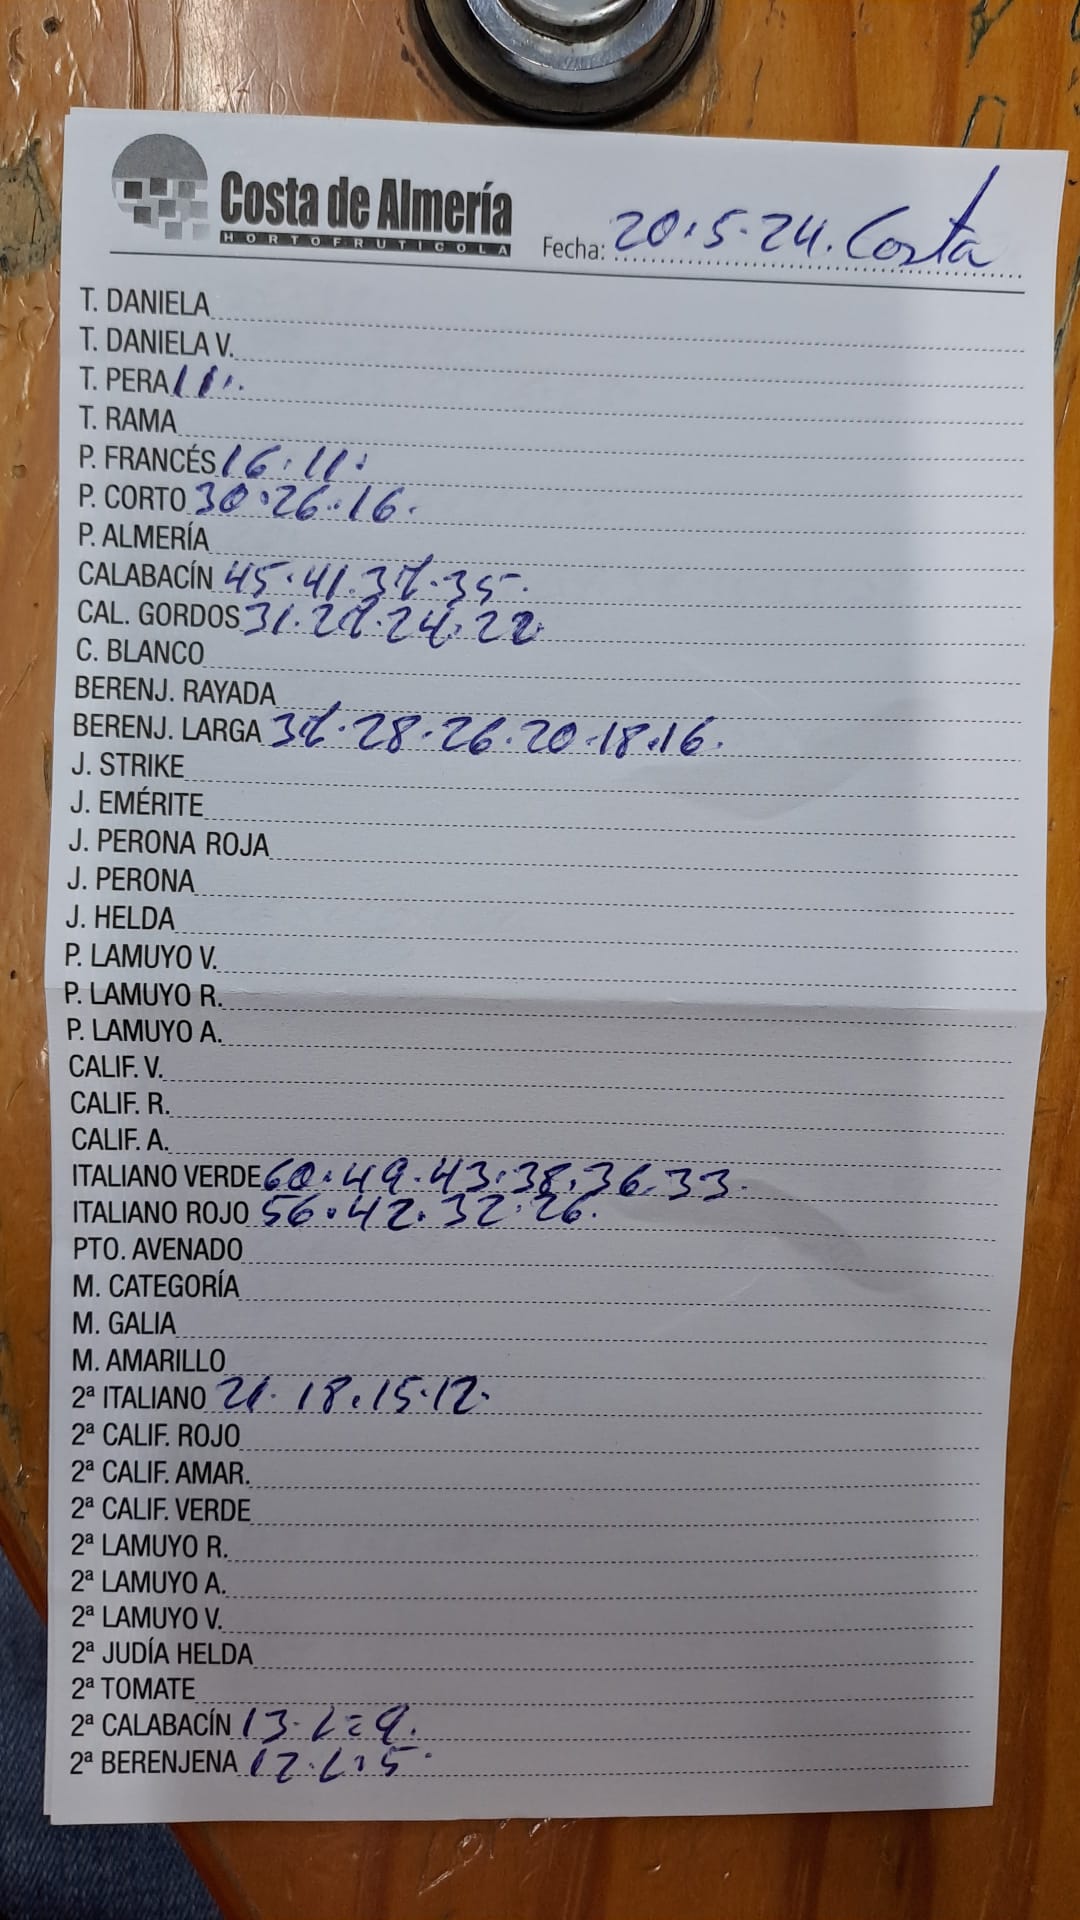 Costa de Almería
HORTOFRUTICOLA
Fecha: 20.5.24. Costa
T. DANIELA
T. DANIELA V.
T. PERA 11.
T. RAMA
P. FRANCÉS 16.11.
P. CORTO 30.26.16.
P. ALMERÍA
CALABACÍN 45.41.37.35.
CAL. GORDOS 31.27.24.22.
C. BLANCO
BERENJ. RAYADA
BERENJ. LARGA 37.28.26.20.18.16.
J. STRIKE
J. EMÉRITE
J. PERONA ROJA
J. PERONA
J. HELDA
P. LAMUYO V.
P. LAMUYO R.
P. LAMUYO A.
CALIF. V.
CALIF. R.
CALIF. A.
ITALIANO VERDE 60.49.43.38.36.33.
ITALIANO ROJO 56.42.32.26.
PTO. AVENADO
M. CATEGORÍA
M. GALIA
M. AMARILLO
2ª ITALIANO 21.18.15.12.
2ª CALIF. ROJO
2ª CALIF. AMAR.
2ª CALIF. VERDE
2ª LAMUYO R.
2ª LAMUYO A.
2ª LAMUYO V.
2ª JUDÍA HELDA
2ª TOMATE
2ª CALABACÍN 13. L=9.
2ª BERENJENA 12. L=5.